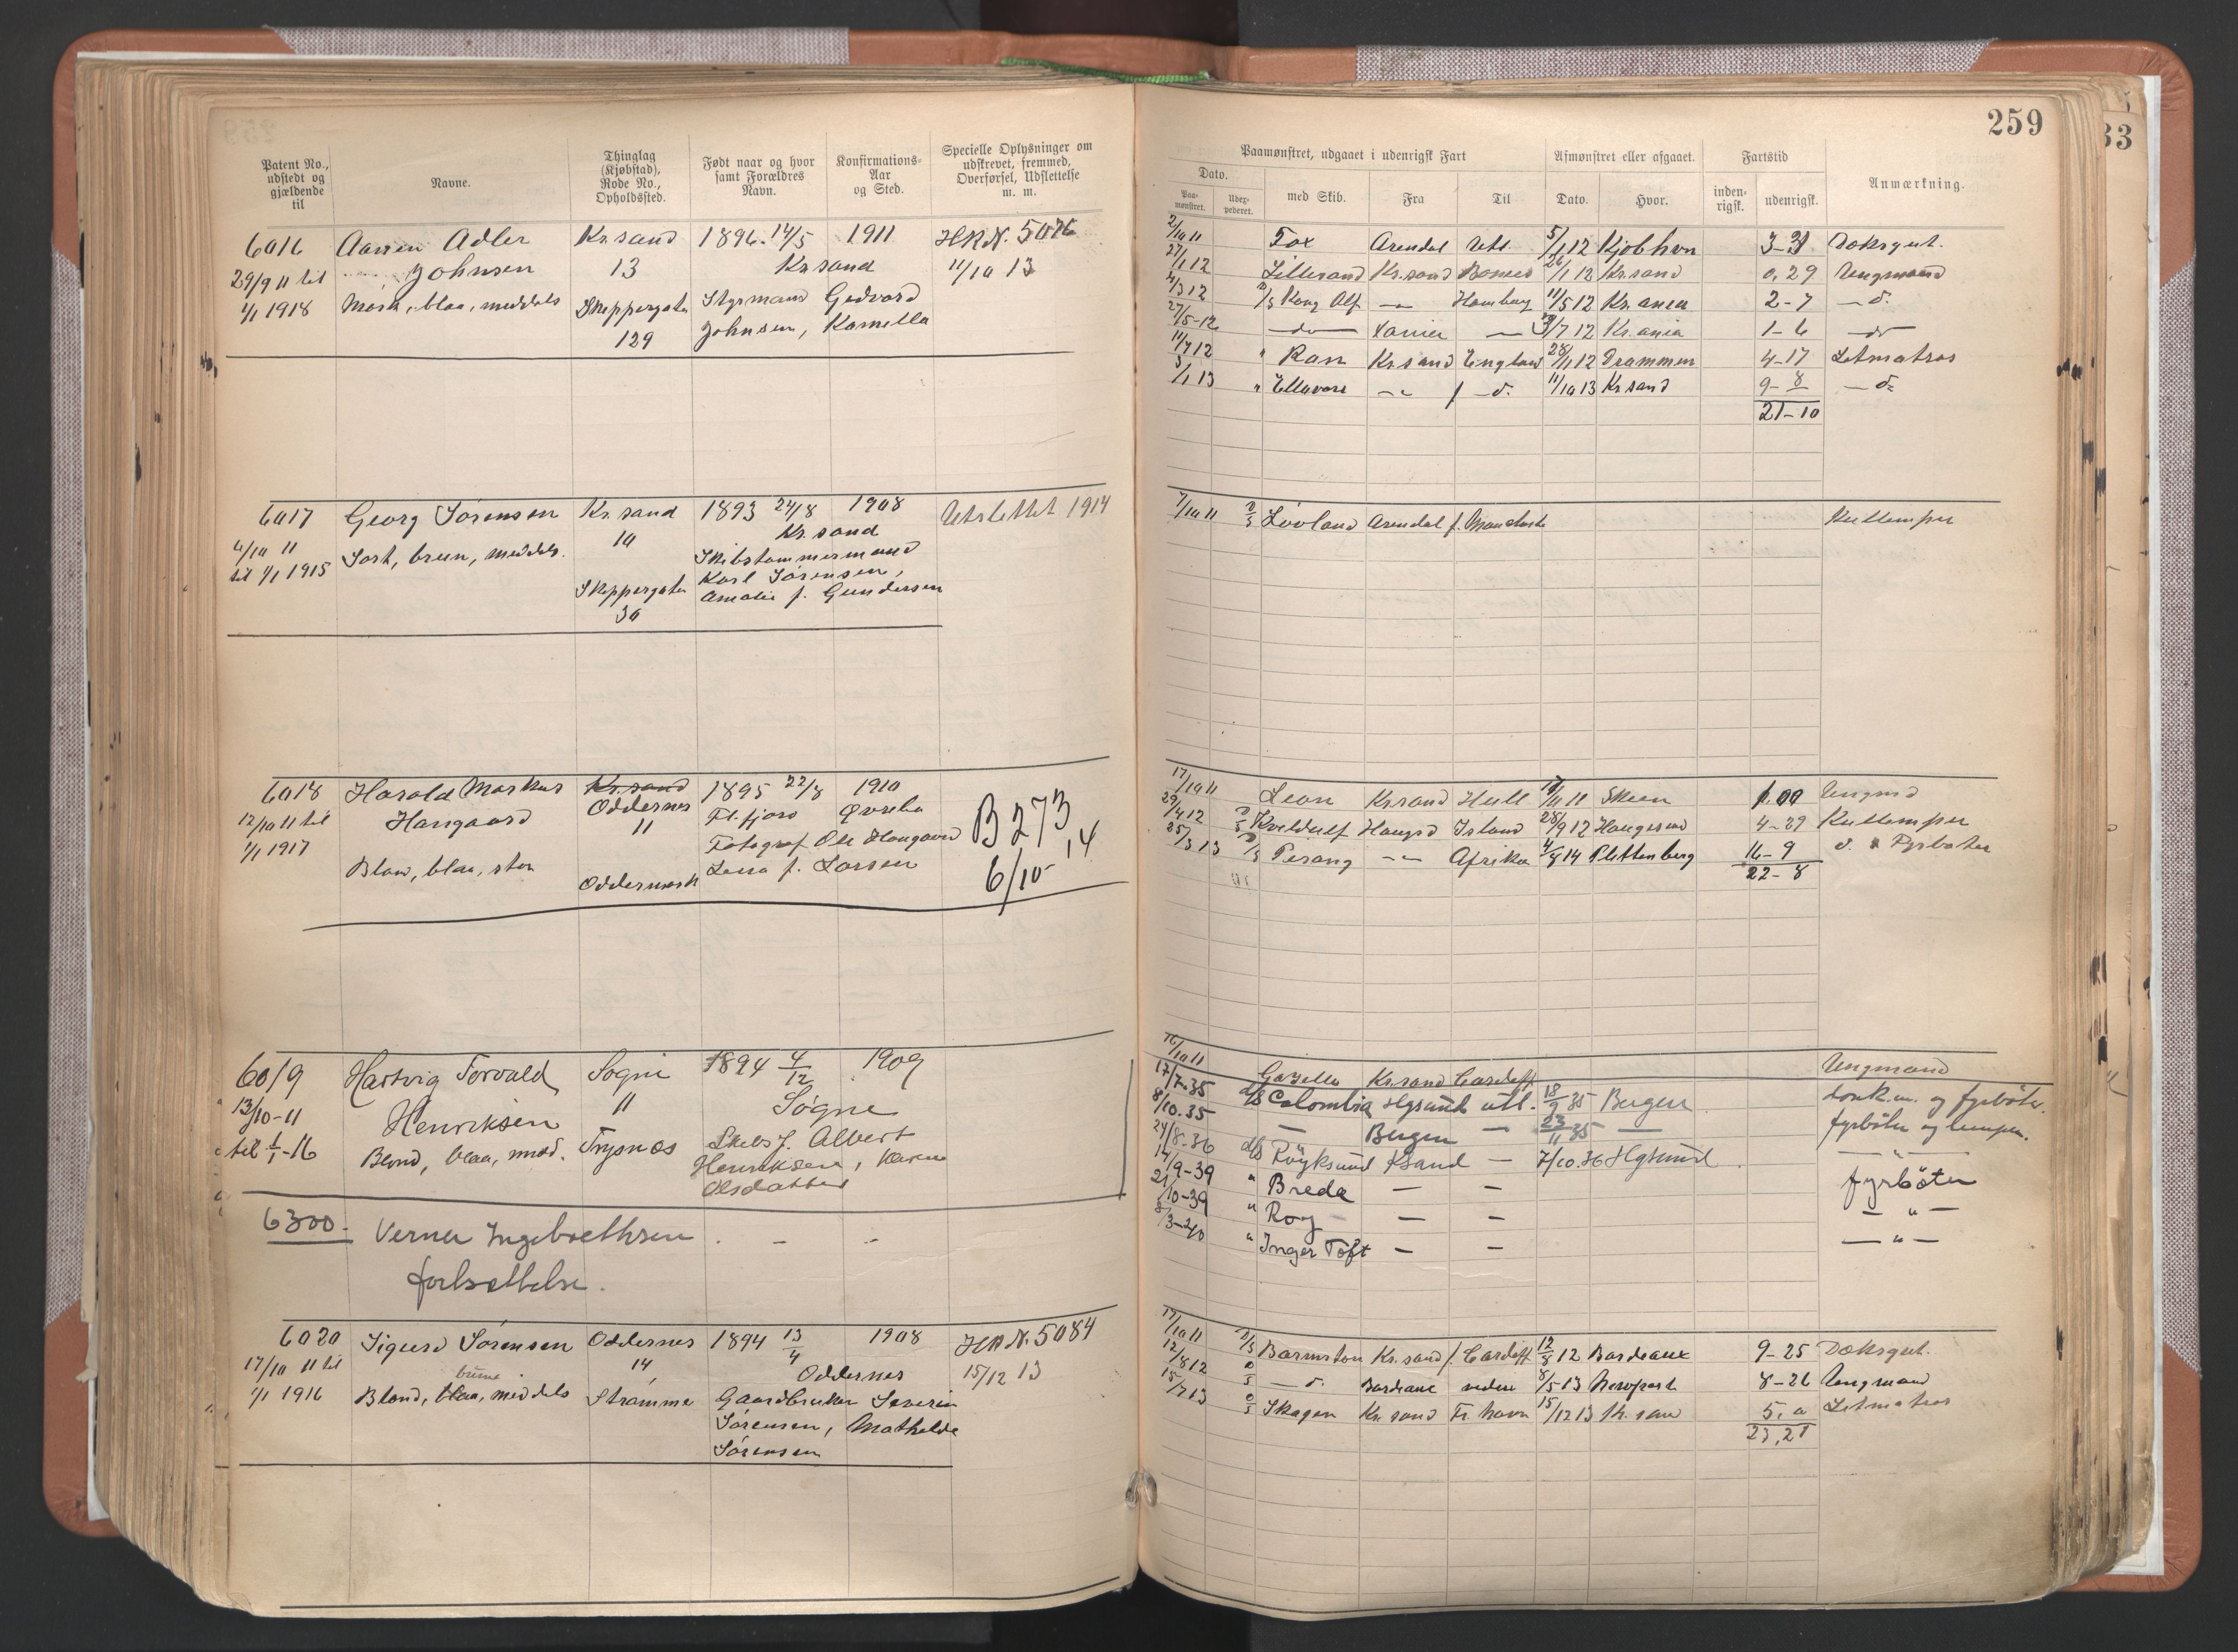 259
33
Patent No., udstedt og gjældende til
Navne.
Thinglag (Kjøbstad), Rode No., Opholdssted.
Født naar og hvor samt Forældres Navn.
Konfirmations-Aar og Sted.
Specielle Oplysninger om udskrevet, fremmed, Overførsel, Udslettelse m. m.
Paamønstret, udgaaet i udenrigsk Fart
Afmønstret eller afgaaet.
Fartstid
Anmærkning.
Dato.
Paa-mønstret.
Udex-pederet.
med Skib.
Fra
Til
Dato.
Hvor.
inden-rigsk.
udenrigsk.
6016 Adler Kr.sand 1896. 14/5 1911 5076
29/9 11 til Johnsen 13 Kr.sand 11/10 13
1/1 1918 Mørk, blaa, middels Skippergaten Styrmand Gedvard
129 Johnsen, Kamilla
2/10 11 Fox Arendal Utl. 5/1 12 Kjøbhvn Doksgut.
27/1 12 Lillesand Kr.sand 0,29 Ungmand
4/3 12 Kong Alf Hamburg 11/5 12 Kr.ania 2-7 — d.
27/5-12 — do — /7 12 Kr.ania 1-6
11/7 12 " Ran Kr.sand England 28/11 12 Drammen 4-17 Letmatros
3/1 13 " — d. 11/10 13 Kr.sand 9-8
21-10
6017 Georg Sørensen Kr.sand 1893 24/8 1908 Utslettet 1914
4/10 11 10 Kr.sand
til 1/1 1915 Sort, brun, middels. Skibstømmermand
Karl Sørensen,
Skippergaten Amalie f. Gundersen
30
7/10 11 D/S Løvland Arendal f. Kullemper
6018 Harald Markus Kr.sand 1895 22/8 1910
12/10 11 til Haugaard Oddernes
11 Fl.fjord
1/1 1917 Fotograf Ole Haugaard
Blaa, blaa, stor f. Larsen
B 273
14
6/10
17/10 11 Leon Kr.sand Hull Skien 1.00
29/4 12 D/S Kveldulf Haugsd Island 28/9 12 Haugesund 4-29 Kullemper
25/3 13 D/S Pisang Afrika 14 Plettenberg 16-9 d. Fyrbøter
22-8
6019 Hartvig Torvald Søgne 1894 4/12 1909
13/10-11 Henriksen 11 Søgne
til 1/1-16 Blond, blaa, midd. Trysnes Skibsf. Albert
Henriksen, Karen
Olsdatter
16/10 11 Gazella Kr.sand Cardiff Ungmand
17/7-35 d/s Colombia Hgsund utl. 18/9 35 Bergen donk.m. og fyrbøter.
8/10.35 — Bergen — 23/11 35 — fyrbøter og lemper.
24/8-36 d/s Røyksund Ksand — 7/10.36 Hgsund — " —
14/9-39 " Breda — — fyrbøter
21/10-39 " Roy — — — " —
8/3-40 " Inger Toft — — — " —
6300. Verner Ingebrethsen . — —
fortsettelse.
6020 Sigurd Sørensen Oddernes 1894 13/4 1908 5084
17/10 11 til 14 Oddernes 15/12 13
brune
1/1 1916 Blond, blaa, middels Strømme Gaardbruker Severin
Sørensen, Mathilde
Sørensen
17/10 11 D/S Barmston Kr.sand f. Cardiff 12/8 12 Bordeaux 9-25 Doksgut.
12/8 12 D/S — d. Bordeaux videre 8/5 13 Newport 8-26 Ungmand
15/7 13 D/S Skagen Kr.sand Fr.havn 15/12 13 5.0 Letmatros
23,21